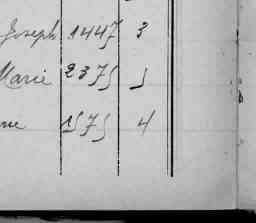 Joseph 1447 3
Marie 2375 5
ne 1575 4